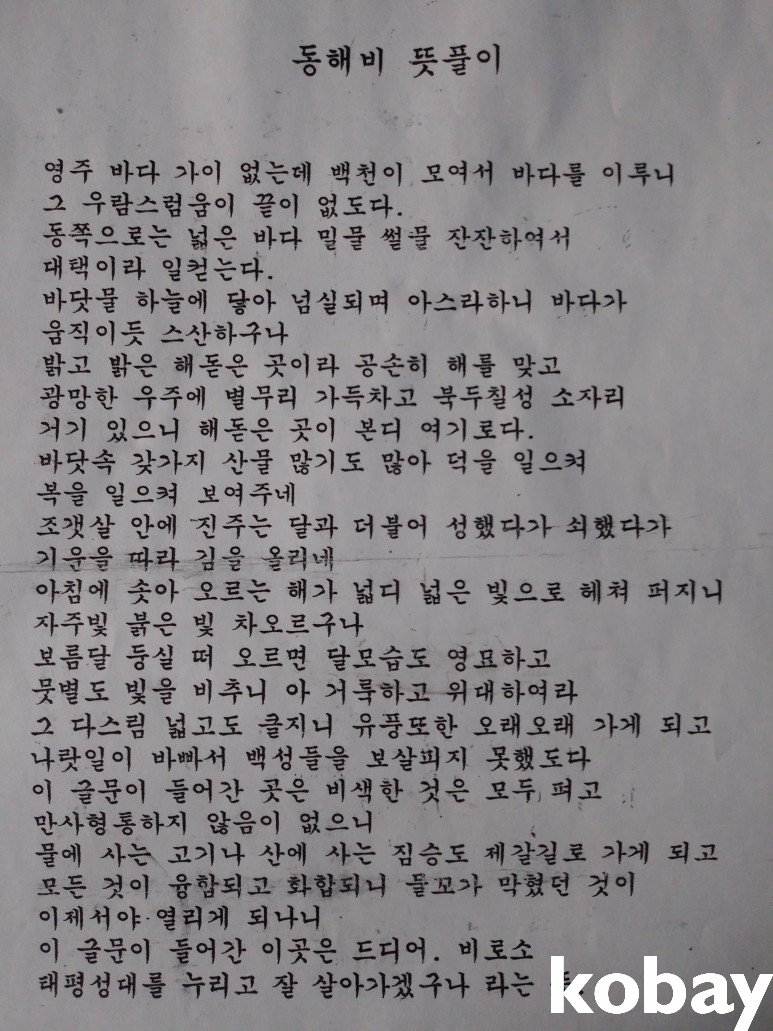 동해비 뜻풀이
영주 바다 가이 없는데 백천이 모여서 바다를 이루니
그 우람스럼움이 끝이 없도다.
동쪽으로는 넓은 바다 밀물 썰물 잔잔하여서
대택이라 일컫는다.
바닷물 하늘에 닿아 넘실되며 아스라하니 바다가
움직이듯 스산하구나
밝고 밝은 해돋은 곳이라 공손히 해를 맞고
광망한 우주에 별무리 가득차고 북두칠성 소자리
거기 있으니 해돋은 곳이 본디 여기로다.
바닷속 갖가지 산물 많기도 많아 덕을 일으켜
복을 일으켜 보여주네
조갯살 안에 진주는 달과 더불어 성했다가 쇠했다가
기운을 따라 김을 올리네
아침에 솟아 오르는 해가 넓디 넓은 빛으로 헤쳐 퍼지니
자주빛 붉은 빛 차오르구나
보름달 둥실 떠 오르면 달모습도 영묘하고
뭇별도 빛을 비추니 아 거룩하고 위대하여라
그 다스림 넓고도 클지니 유풍또한 오래오래 가게 되고
나랏일이 바빠서 백성들을 보살피지 못했도다
이 글문이 들어간 곳은 비색한 것은 모두 펴고
만사형통하지 않음이 없으니
물에 사는 고기나 산에 사는 짐승도 제갈길로 가게 되고
모든 것이 융합되고 화합되니 들꼬가 막혔던 것이
이제서야 열리게 되나니
이 글문이 들어간 이곳은 드디어. 비로소
태평성대를 누리고 잘 살아가겠구나 라는
kobay